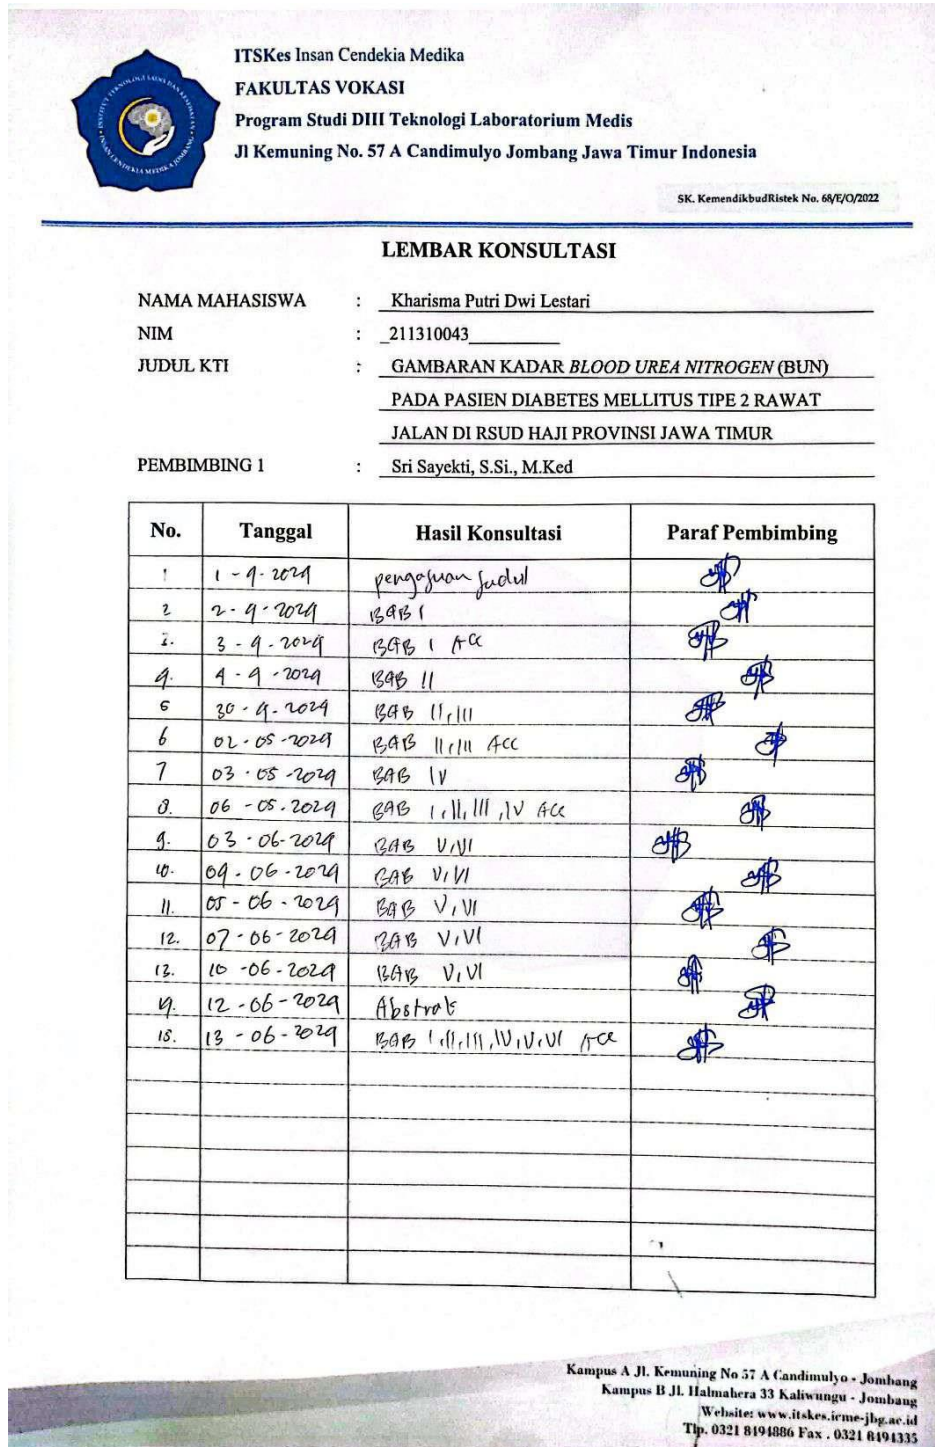 INSTITUT TEKNOLOGI SAINS DAN KESEHATAN
INSAN CENDEKIA MEDIKA JOMBANG
ITSKes Insan Cendekia Medika
FAKULTAS VOKASI
Program Studi DIII Teknologi Laboratorium Medis
Jl Kemuning No. 57 A Candimulyo Jombang Jawa Timur Indonesia
SK. KemendikbudRistek No. 68/E/O/2022
LEMBAR KONSULTASI
NAMA MAHASISWA : Kharisma Putri Dwi Lestari
NIM : _211310043
JUDUL KTI : GAMBARAN KADAR BLOOD UREA NITROGEN (BUN)
PADA PASIEN DIABETES MELLITUS TIPE 2 RAWAT
JALAN DI RSUD HAJI PROVINSI JAWA TIMUR
PEMBIMBING 1 : Sri Sayekti, S.Si., M.Ked
No. Tanggal Hasil Konsultasi Paraf Pembimbing
1 1 - 4 - 2024 pengajuan judul
2 2 - 4 - 2024 BAB I
3. 3 - 4 - 2024 BAB I ACC
4. 4 - 4 - 2024 BAB II
5 30 - 4 - 2024 BAB II, III
6 02 - 05 - 2024 BAB II, III ACC
7 03 - 05 - 2024 BAB IV
8. 06 - 05 - 2024 BAB I, II, III, IV ACC
9. 03 - 06 - 2024 BAB V, VI
10. 04 - 06 - 2024 BAB V, VI
11. 05 - 06 - 2024 BAB V, VI
12. 07 - 06 - 2024 BAB V, VI
13. 10 - 06 - 2024 BAB V, VI
14. 12 - 06 - 2024 Abstrak
15. 13 - 06 - 2024 BAB I, II, III, IV, V, VI ACC
Kampus A Jl. Kemuning No 57 A Candimulyo - Jombang
Kampus B Jl. Halmahera 33 Kaliwungu - Jombang
Website: www.itskes.icme-jbg.ac.id
Tlp. 0321 8194886 Fax . 0321 8194335